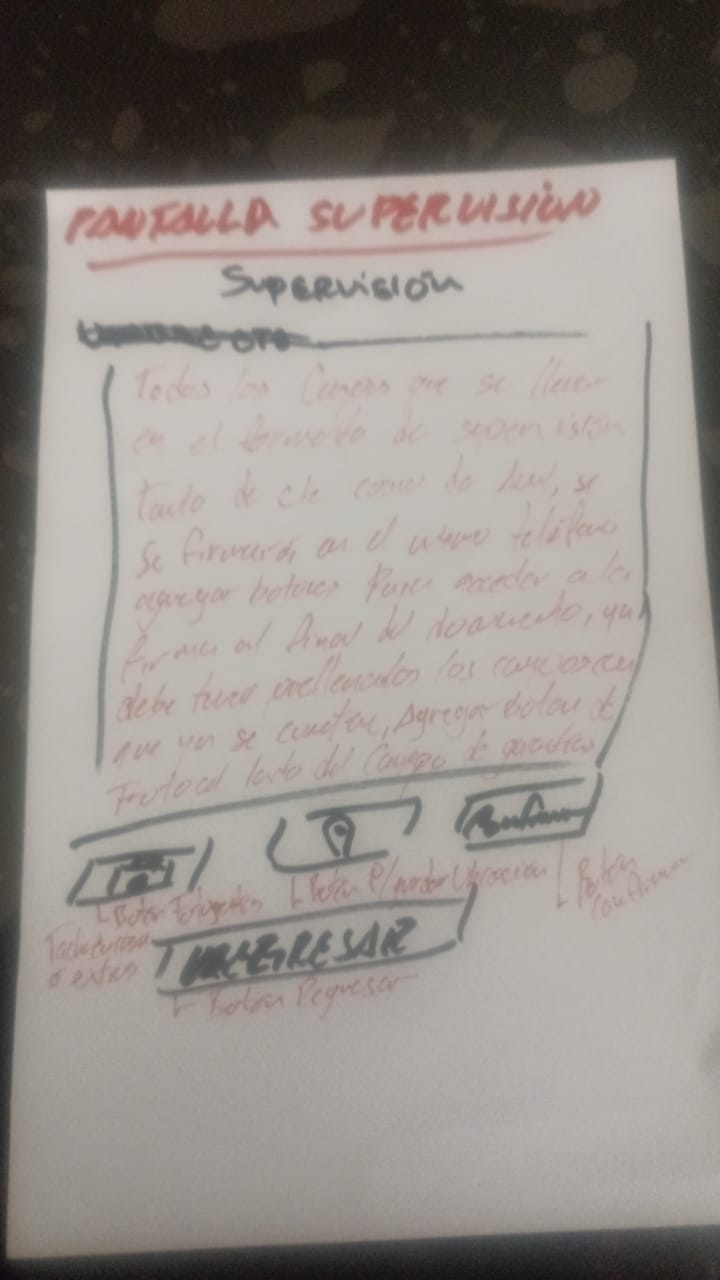 PANTALLA SUPERVISIÓN
SUPERVISIÓN
Todos los Campos que se lleven
en el formato de supervisión
tanto de cle como de
se firmará, en el mismo teléfono
agregar botones Para acceder a la
firma al final del documento, ya
debe tener prellenados los campos con
que ya se cuentan, Agregar boton de
Foto al lado del Campo de
Confirmar
Boton Fotografias
Boton P/guardar Ubicacion
Boton
Confirmar
Fachada
o extras
REGRESAR
Boton Regresar